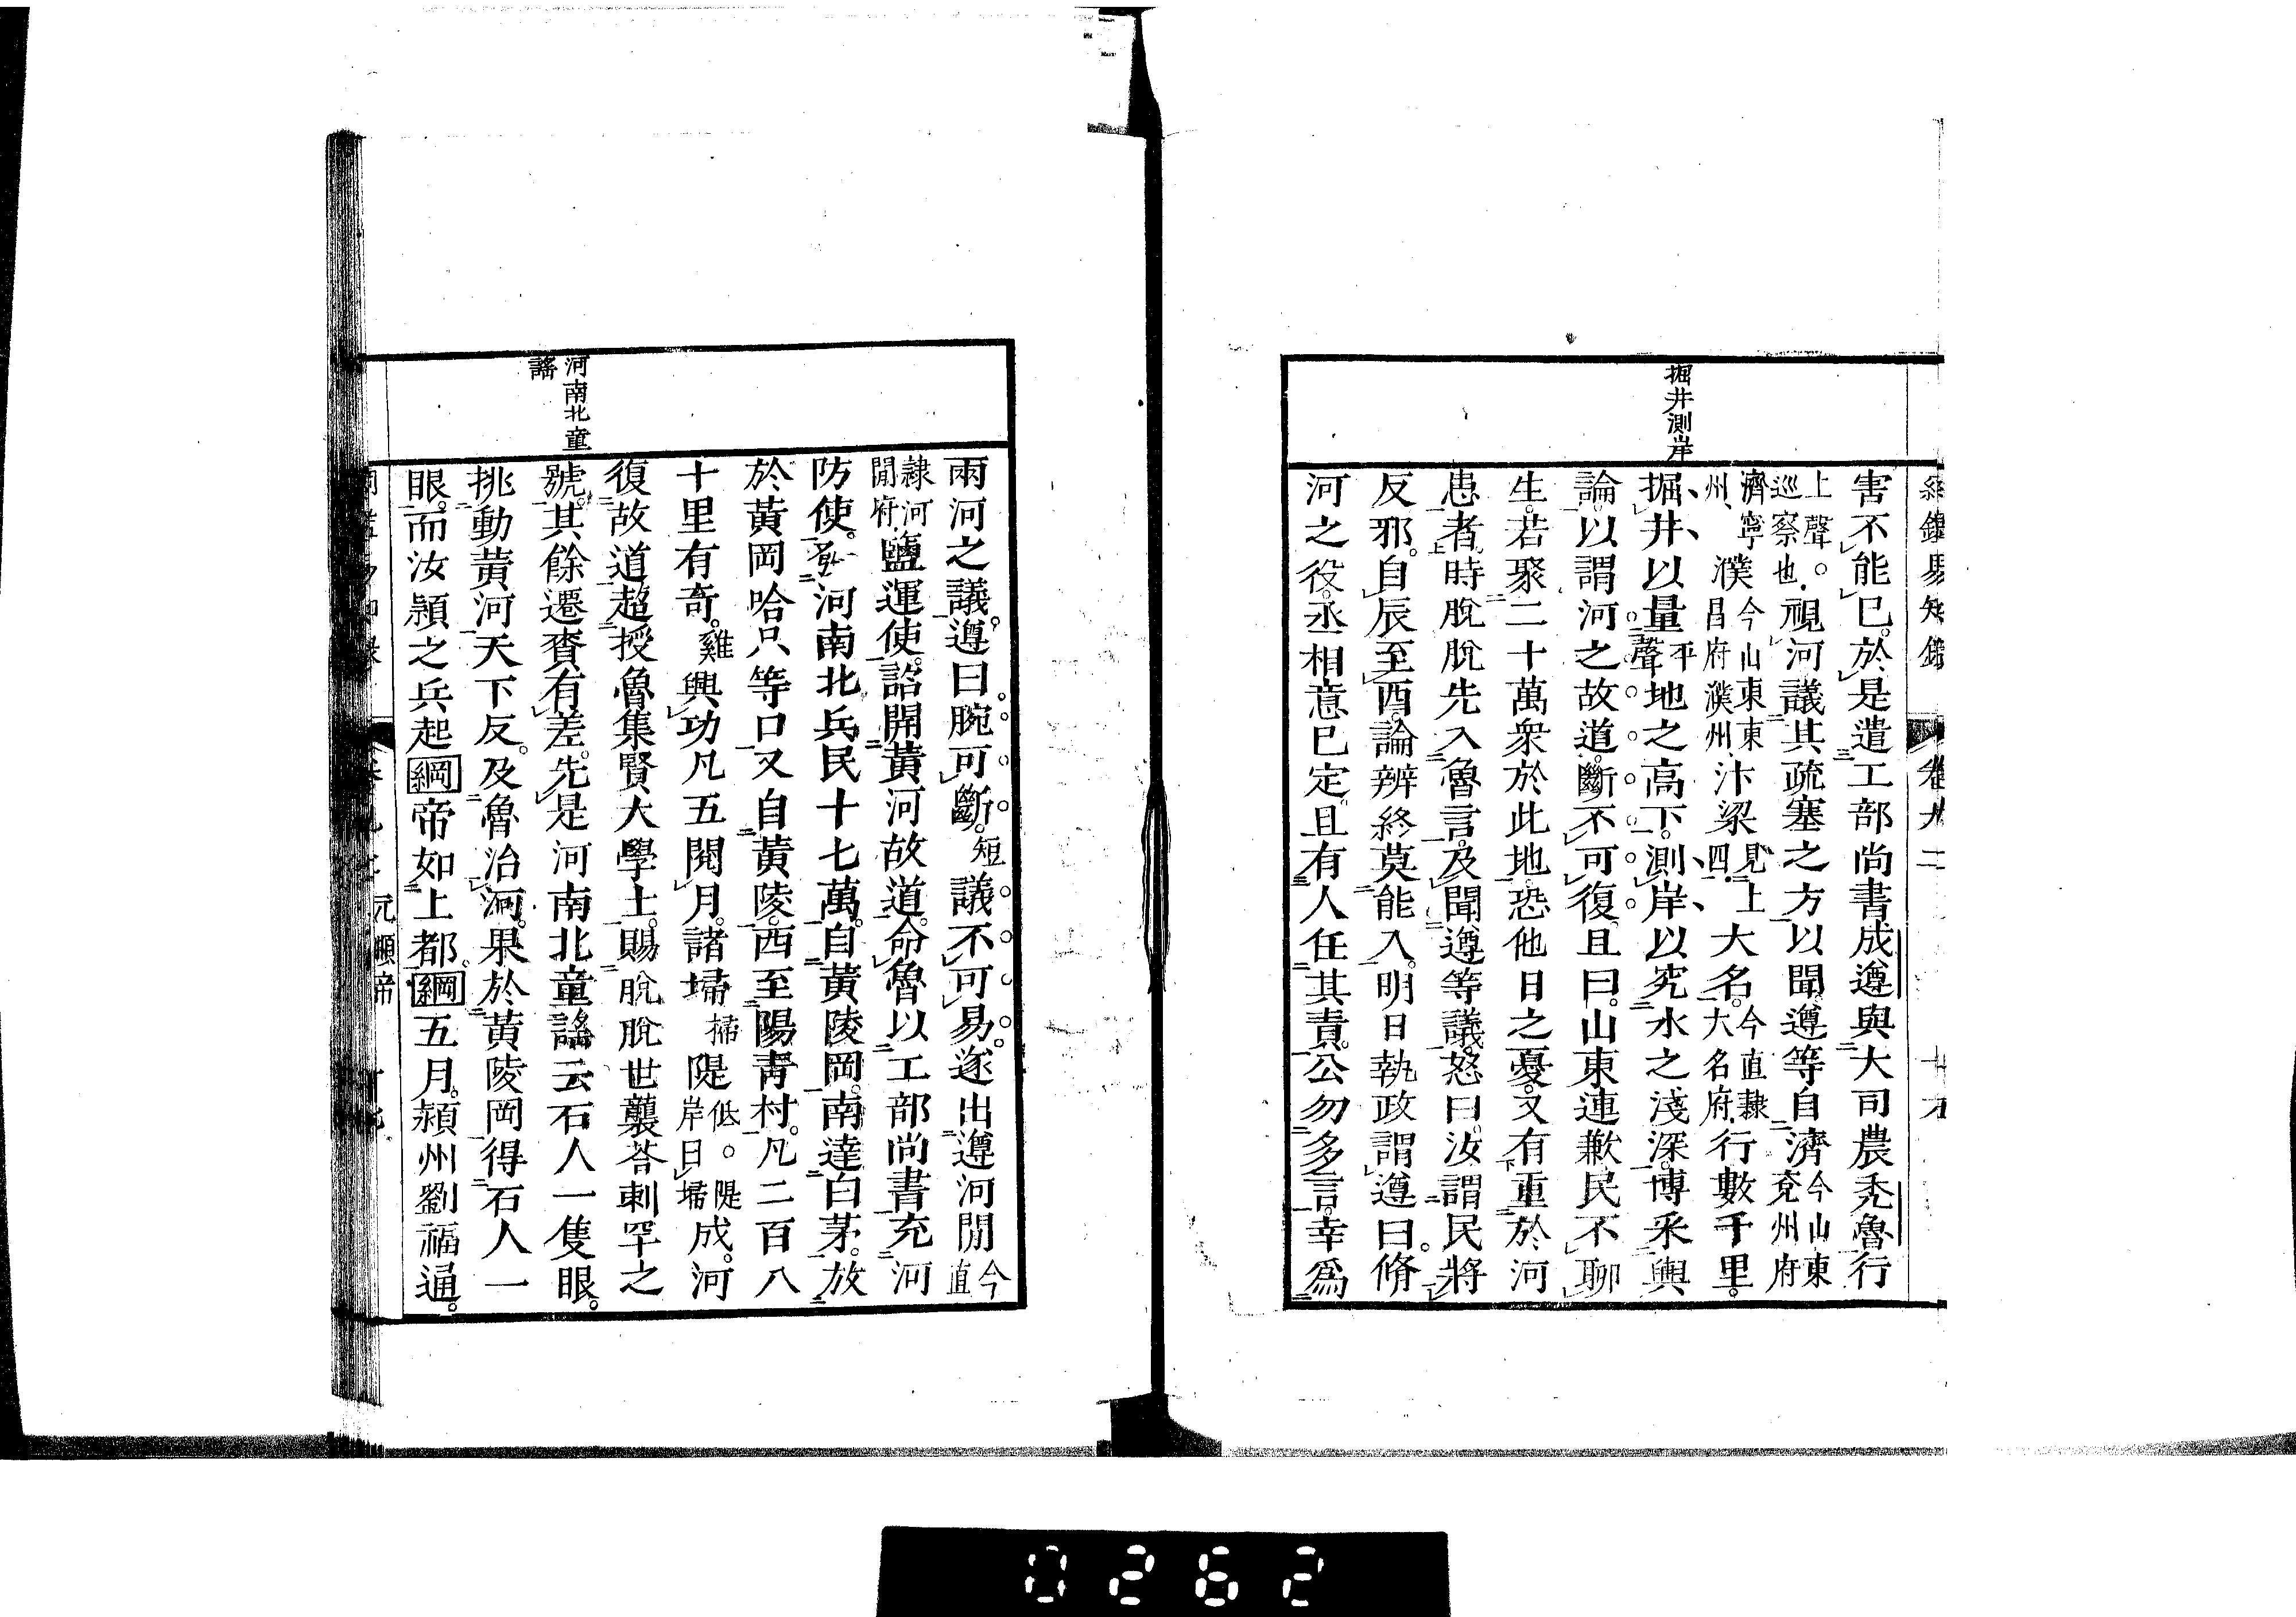 綱鑑易知錄 卷九二
掘井測岸
害不能已。於是遣工部尚書成遵與大司農禿魯行
上聲。巡察也。視河議其疏塞之方以聞。遵等自濟今山東兗州府
濟寧州、濮今山東東昌府濮州、汴梁見上四大名。今直隸大名府。行數千里。
掘井以量平聲地之高下。測岸以究水之淺深。博采輿
論。以謂河之故道。斷不可復。且曰。山東連歉民不聊
生。若聚二十萬衆於此地。恐他日之憂。又有重於河
患者。時脫脫先入魯言。及聞遵等議。怒曰。汝謂民將
反邪。自辰至酉。論辨終莫能入。明日執政謂遵曰。脩
河之役。丞相意已定。且有人任其責。公勿多言。幸爲
兩河之議。遵曰。腕可斷。短議不可易。遂出遵河閒今直
隸河閒府鹽運使。詔開黃河故道。命魯以工部尚書充河
防使。發河南北兵民十七萬。自黃陵岡。南達白茅。放
於黃岡哈只等口又自黃陵。西至陽靑村。凡二百八
十里有奇。雞興功凡五閱月。諸埽掃隄低。隄岸曰埽成。河
復故道。超授魯集賢大學士。賜脫脫世襲荅剌罕之
號。其餘遷賚有差。先是河南北童謠云石人一隻眼。
河南北童
謠
挑動黃河天下反。及魯治河。果於黃陵岡得石人一
眼。而汝潁之兵起綱帝如上都。綱五月。潁州劉福通。
元順帝
0262